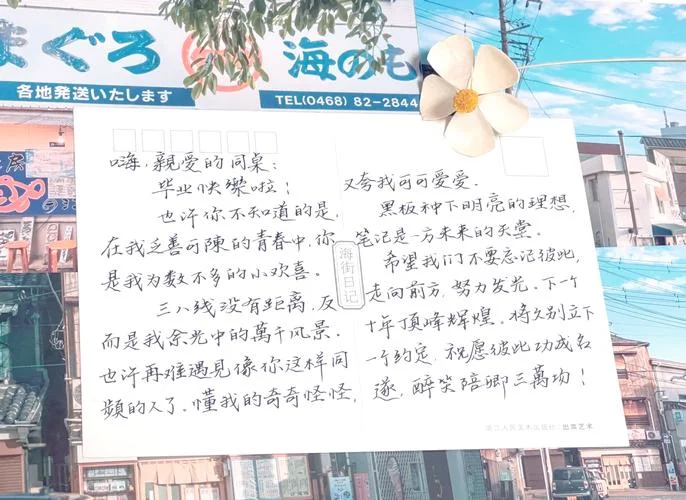 まぐろ
海のも
各地発送いたします
TEL(0468) 82-2844
嗨，親愛的同桌：
毕业快樂啦！
也许你不知道的是，
在我乏善可陳的青春中，你
是我为数不多的小欢喜。
三八线没有距离，反
而是我余光中的萬千风景。
也许再难遇見像你这样同
頻的人了。懂我的奇奇怪怪，
海街日记
又夸我可可愛愛。
黑板种下明亮的理想，
笔记是一方未来的天堂。
希望我们不要忘记彼此，
走向前方，努力发光。下一个
十年顶峰辉煌。将久别立下
一个约定，祝愿彼此功成名
遂，醉笑陪卿三萬场！
浙江人民美术出版社 出品艺术